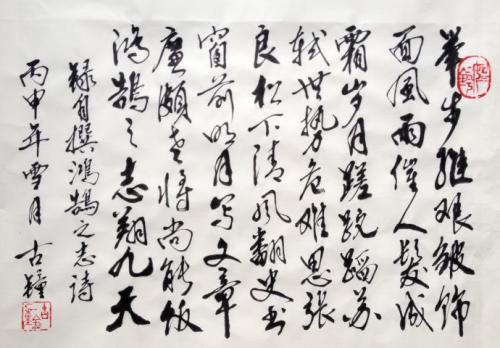 举步维艰皱饰
面风雨催人鬓成
霜岁月蹉跎蹈苏
轼世势危难思张
良松下清风翻史书
窗前明月写文章
廉颇老将尚能饭
鸿鹄之志翔九天
録自撰鸿鹄之志诗
丙申年雪月古鐘